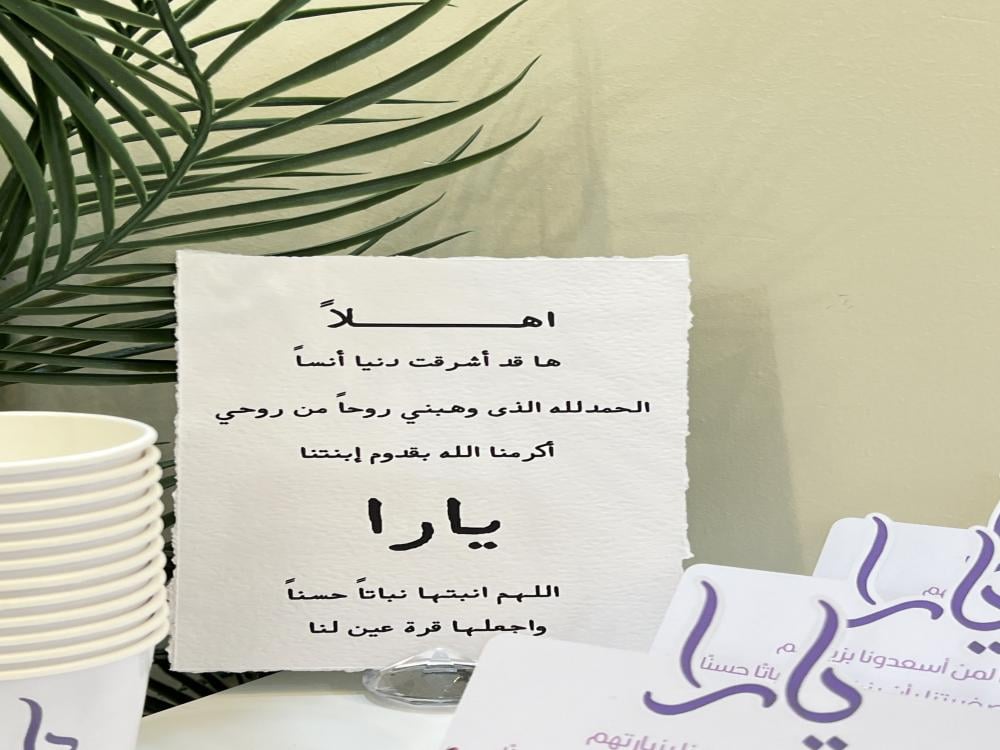 اهـــــــــــلاً
ها قد أشرقت دنيا أنساً
الحمدلله الذى وهبني روحاً من روحي
أكرمنا الله بقدوم إبنتنا
يارا
اللهم انبتها نباتاً حسناً
واجعلها قرة عين لنا
يارا
لمن أسعدونا
حسنًا
يارا
بزيارتهم